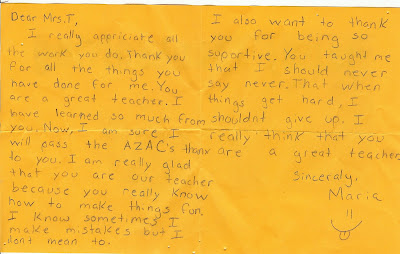 Dear Mrs.T,
I really appriciate all
the work you do. Thank you
for all the things you
have done for me. You
are a great teacher. I
have learned so much from
you. Now, I am sure I
will pass the AZAC's thanx
to you. I am really glad
that you are our teacher
because you really know
how to make things fun.
I know sometimes I
make mistakes but I
dont mean to.
I also want to thank
you for being so
suportive. You taught me
that I should never
say never. That when
things get hard, I
shouldnt give up. I
really think that you
are a great teacher.
Sinceraly,
Maria